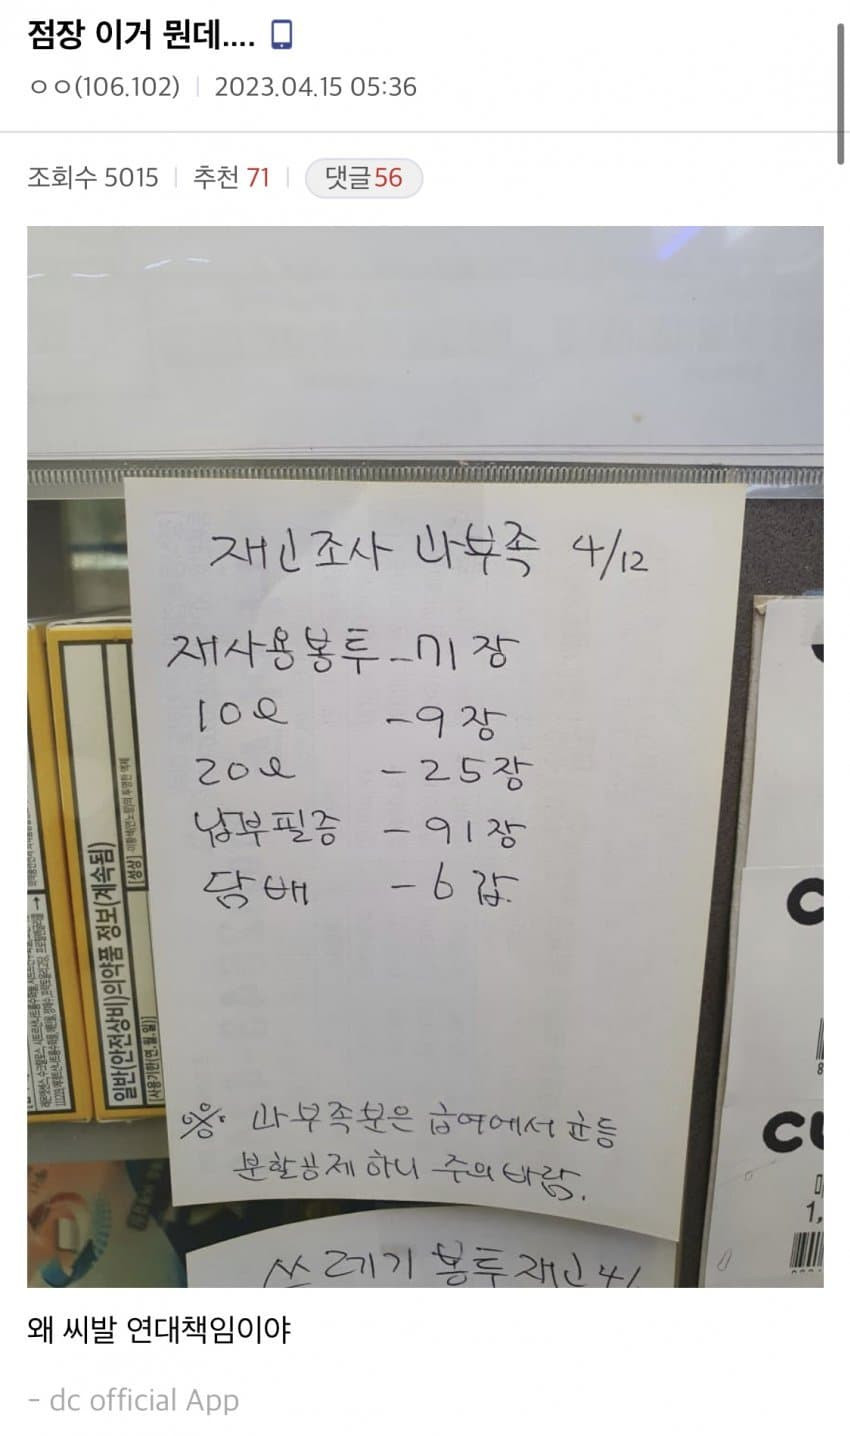 점장 이거 뭔데....
ㅇㅇ(106.102) | 2023.04.15 05:36
조회수 5015 | 추천 71 | 댓글 56
재고조사 과부족 4/12
재사용봉투 -71장
10ℓ -9장
20ℓ -25장
납부필증 -91장
담배 -6갑
※ 과부족분은 급여에서 균등
분할공제 하니 주의바람.
쓰레기 봉투재고 4/
일반(안전상비)의약품 정보(계속됨)
[성상]
[사용기한(연,월,일)]
CU
1,
왜 씨발 연대책임이야
- dc official App